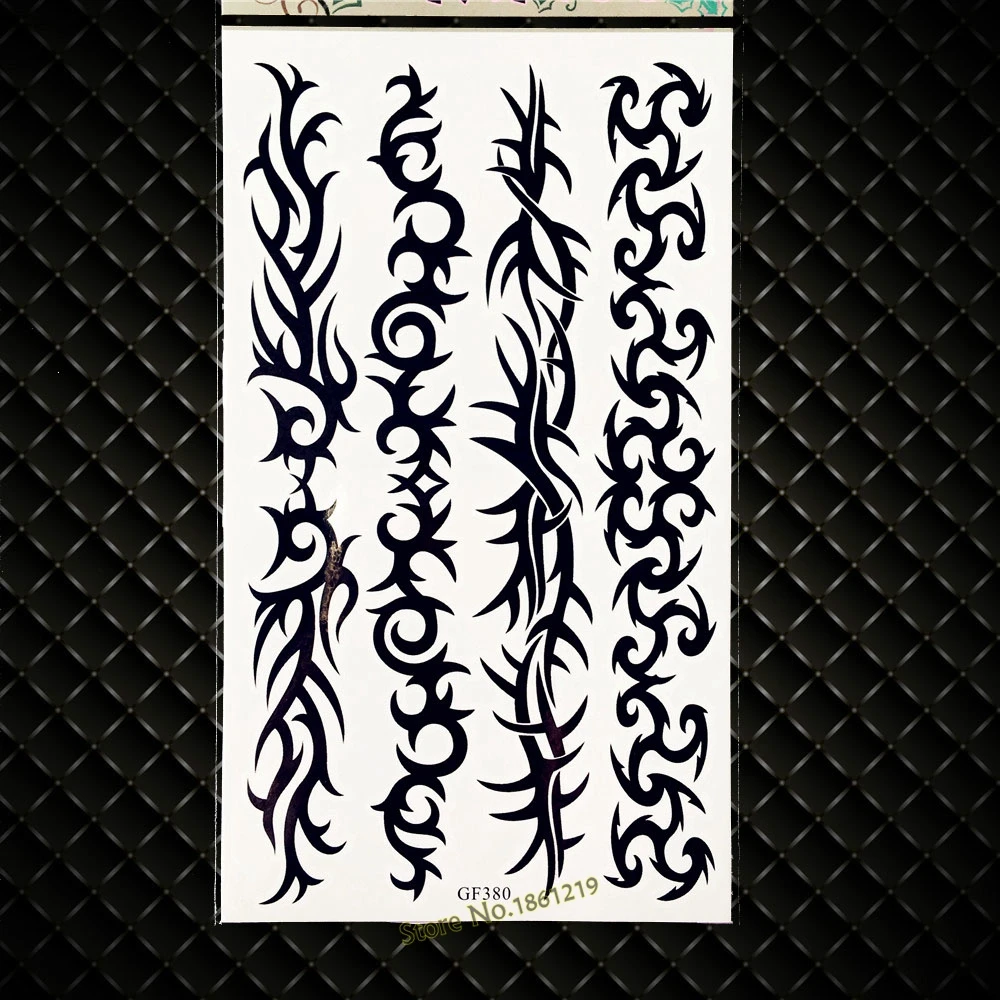 GF380
Store No.1861219